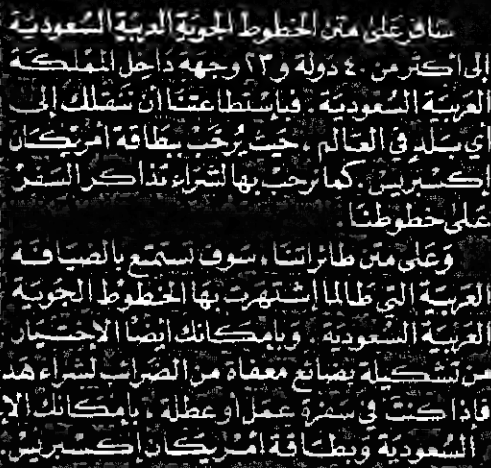 سافر على متن الخطوط الجوية العربية السعودية
إلى اكثر من ٤٠ دولة و٢٣ وجهة داخل المملكة
العربية السعودية . فبإستطاعتنا أن ننقلك إلى
أي بلد في العالم ، حيث يُرحّب ببطاقة امريكان
إكسبريس . كما نرحب بها لشراء تذاكر السفر
على خطوطنا .
وَعلى متن طائراتنا ، سَوف تستمتع بالضيافة
العربية التي طالما إشتهرت بها الخطوط الجوية
العربية السعودية . وبإمكانك ايضا الاختيار
من تشكيلة بضائع معفاة من الضرائب لشراء هد
فإذا كنت في سفرة عمل أو عطلة ، بإمكانك الإ
السعودية وبطاقة امريكان إكسبريس .